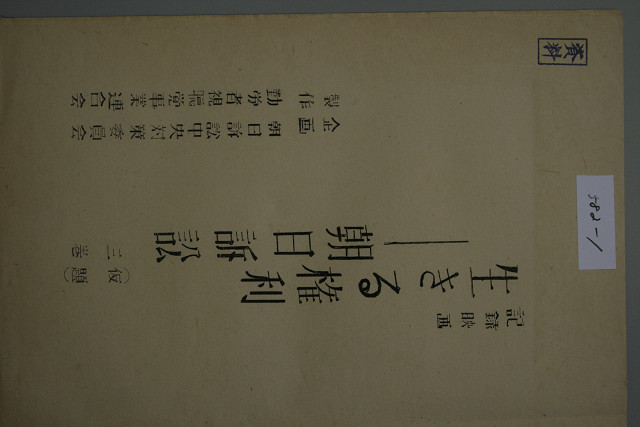 資料
記録映画
生きる権利
―朝日訴訟
(仮題)
三巻
企画 朝日訴訟中央対策委員会
製作 勤労者視聴覚事業連合会